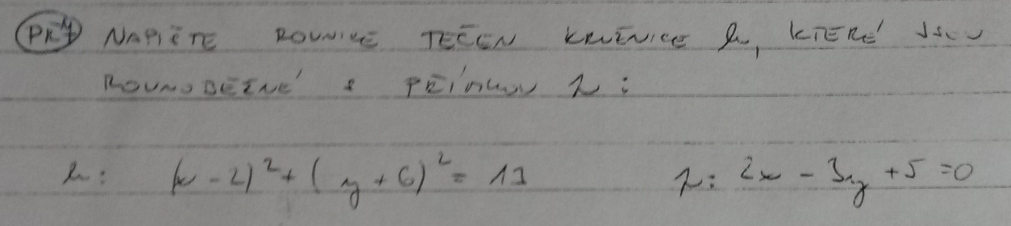 PŘ4 NAPIŠTE ROVNICE TEČEN KRUŽNICE k, KTERÉ JSOU
ROVNOBĚŽNÉ S PŘÍMKOU p:
k: (x - 2)² + (y + 6)² = 13 p: 2x - 3y + 5 = 0